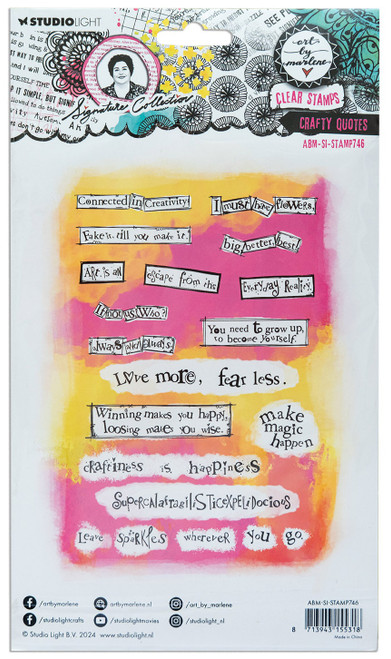 STUDIOLIGHT
art
by
marlene
Signature Collection
CLEAR STAMPS
CRAFTY QUOTES
ABM-SI-STAMP746
Connected in Creativity!
I must have flowers.
Fake it till you make it.
big, better, best!
Art is an
escape from this
Everyday Reality.
You need to grow up,
to become yourself.
Love more, fear less.
Winning makes you happy,
loosing makes you wise.
make
magic
happen
craftiness is happiness
Leave sparkles wherever you go.
/artbymarlene
artbymarlene.nl
/art_by_marlene
/studiolightcrafts
/studiolightmovies
/studiolight_nl
© Studio Light B.V. 2024 www.studiolight.nl
ABM-SI-STAMP746
Made in China
8 713943 155318